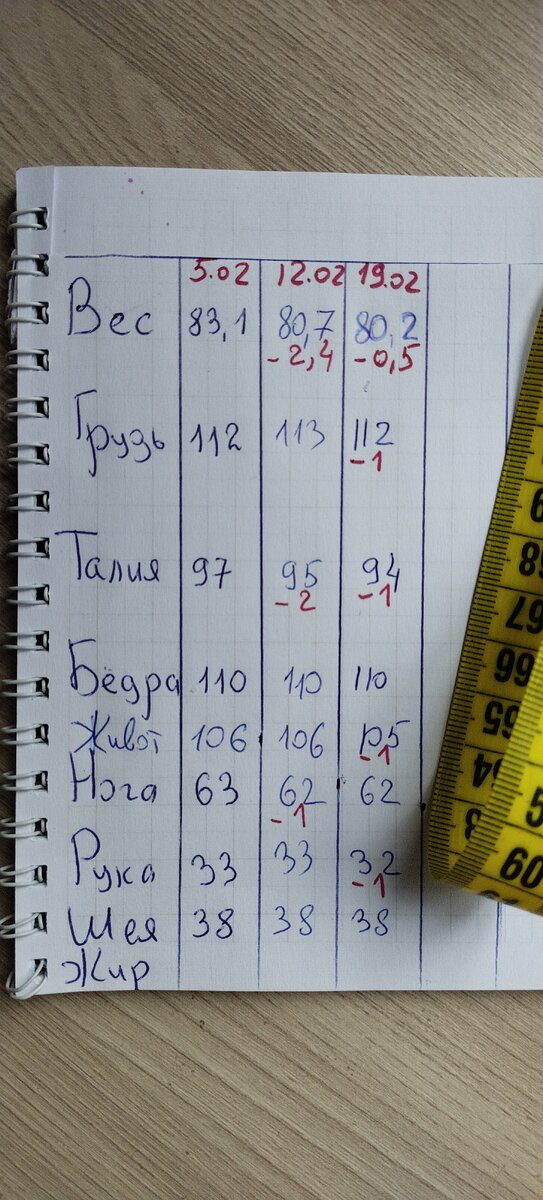 5.02 12.02 19.02
Вес 83,1 80,7 80,2
-2,4 -0,5
Грузь 112 113 112
-1
Талия 97 95 94
-2 -1
Бёдра 110 110 110
Живот 106 106 105
-1
Нога 63 62 62
-1
Рука 33 33 32
-1
Шея 38 38 38
Жир
68
67
66
65
64
60